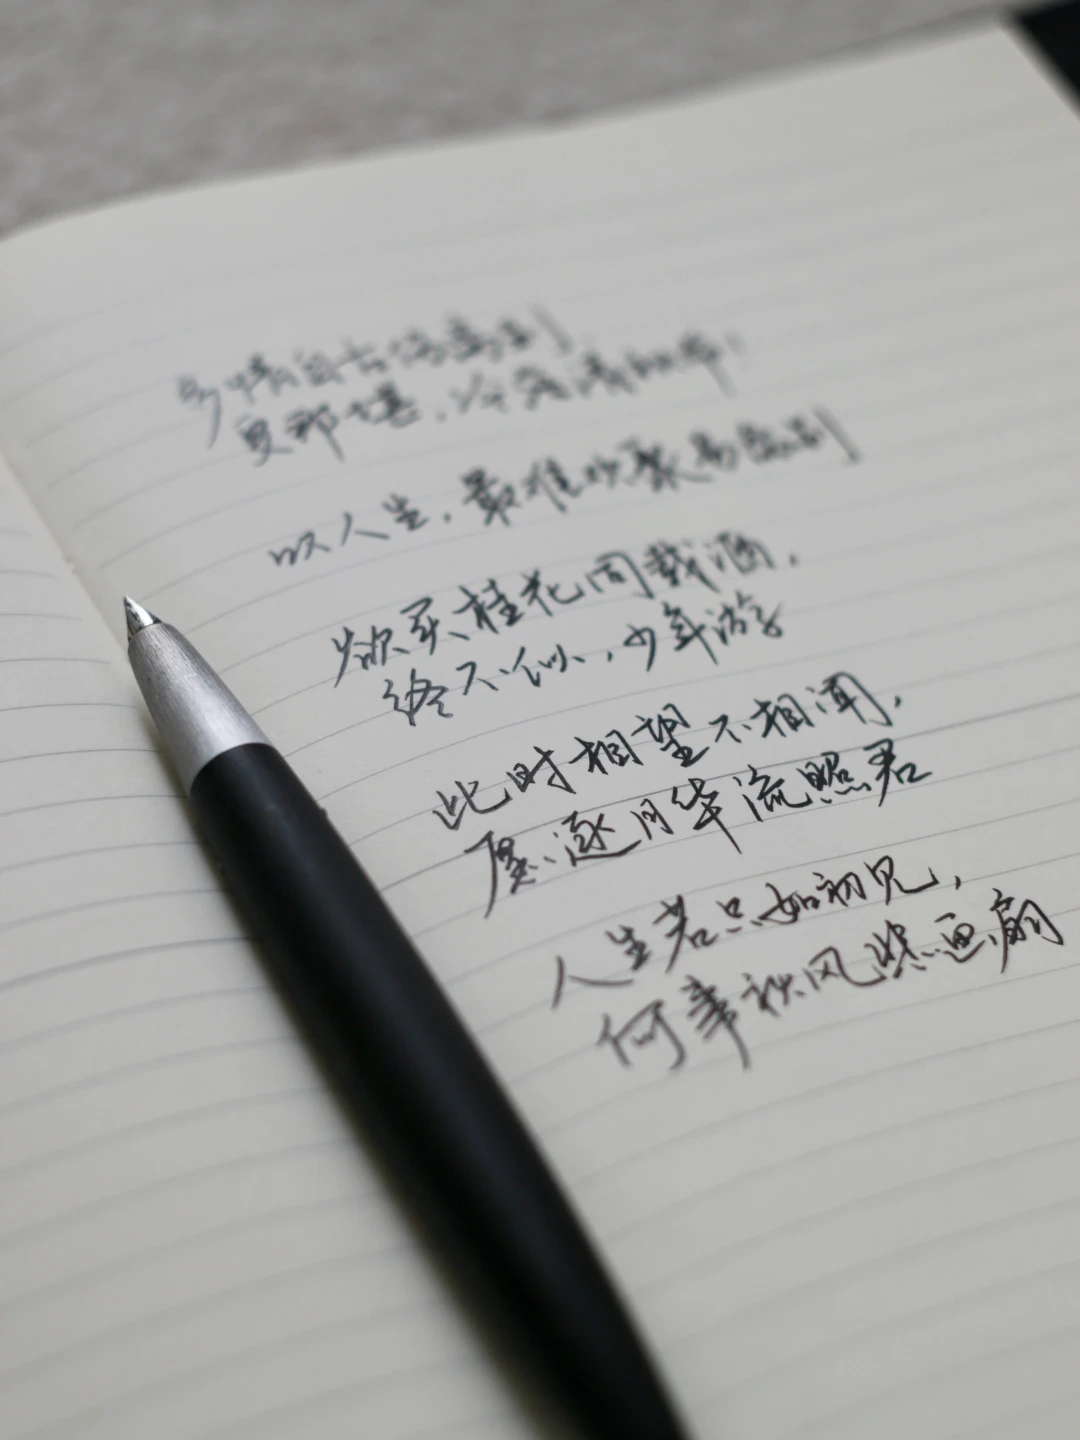 多情自古伤离别
更那堪,冷落清秋节!
叹人生,最难欢聚易离别
欲买桂花同载酒,
终不似,少年游
此时相望不相闻,
愿逐月华流照君
人生若只如初见,
何事秋风悲画扇